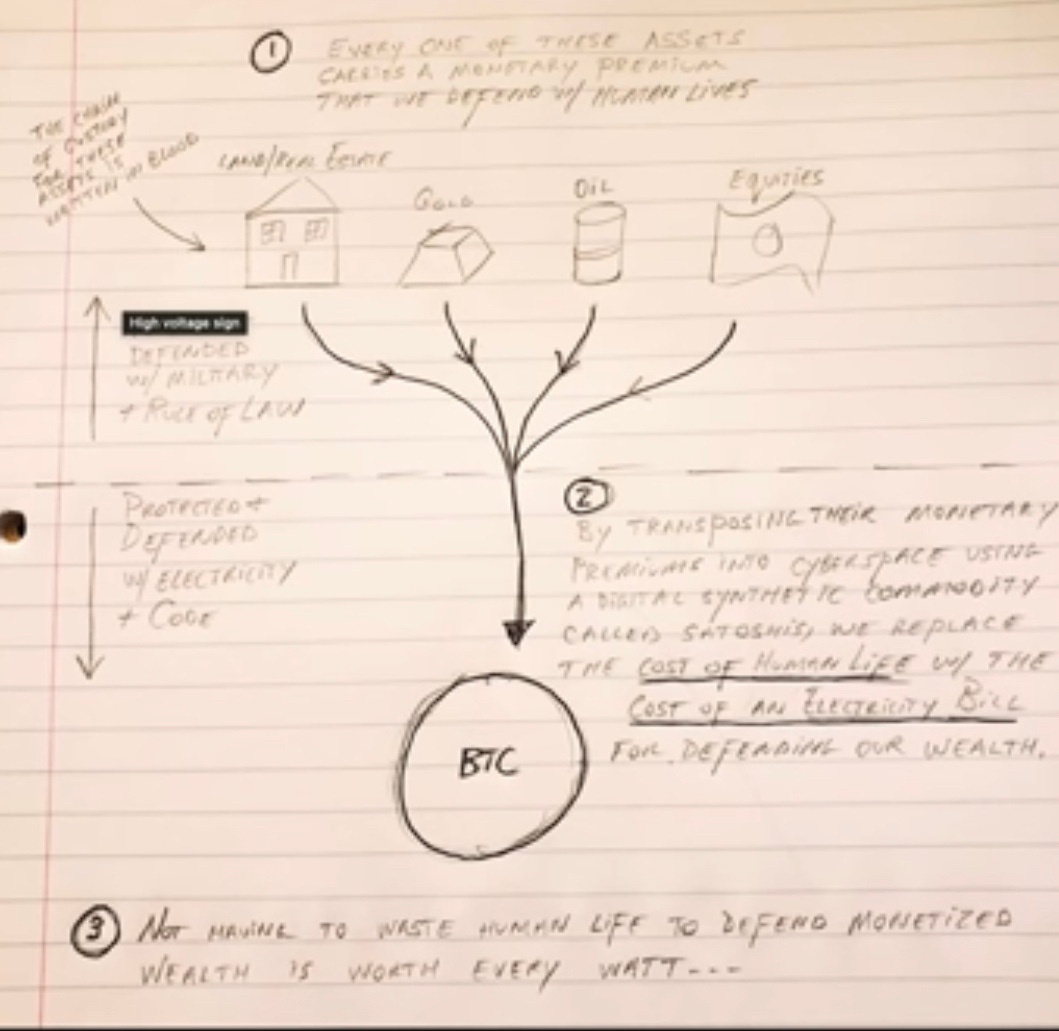 1
EVERY ONE OF THESE ASSETS
CARRIES A MONETARY PREMIUM
THAT WE DEFEND W/ HUMAN LIVES
THE CHAIN
OF CUSTODY
FOR THESE
ASSETS IS
WRITTEN IN BLOOD
LAND/REAL ESTATE
GOLD
OIL
EQUITIES
High voltage sign
DEFENDED
W/ MILITARY
+ RULE OF LAW
PROTECTED +
DEFENDED
W/ ELECTRICITY
+ CODE
2
BY TRANSPOSING THEIR MONETARY
PREMIUMS INTO CYBERSPACE USING
A DIGITAL SYNTHETIC COMMODITY
CALLED SATOSHIS, WE REPLACE
THE COST OF HUMAN LIFE W/ THE
COST OF AN ELECTRICITY BILL
FOR DEFENDING OUR WEALTH.
BTC
3 NOT HAVING TO WASTE HUMAN LIFE TO DEFEND MONETIZED
WEALTH IS WORTH EVERY WATT---